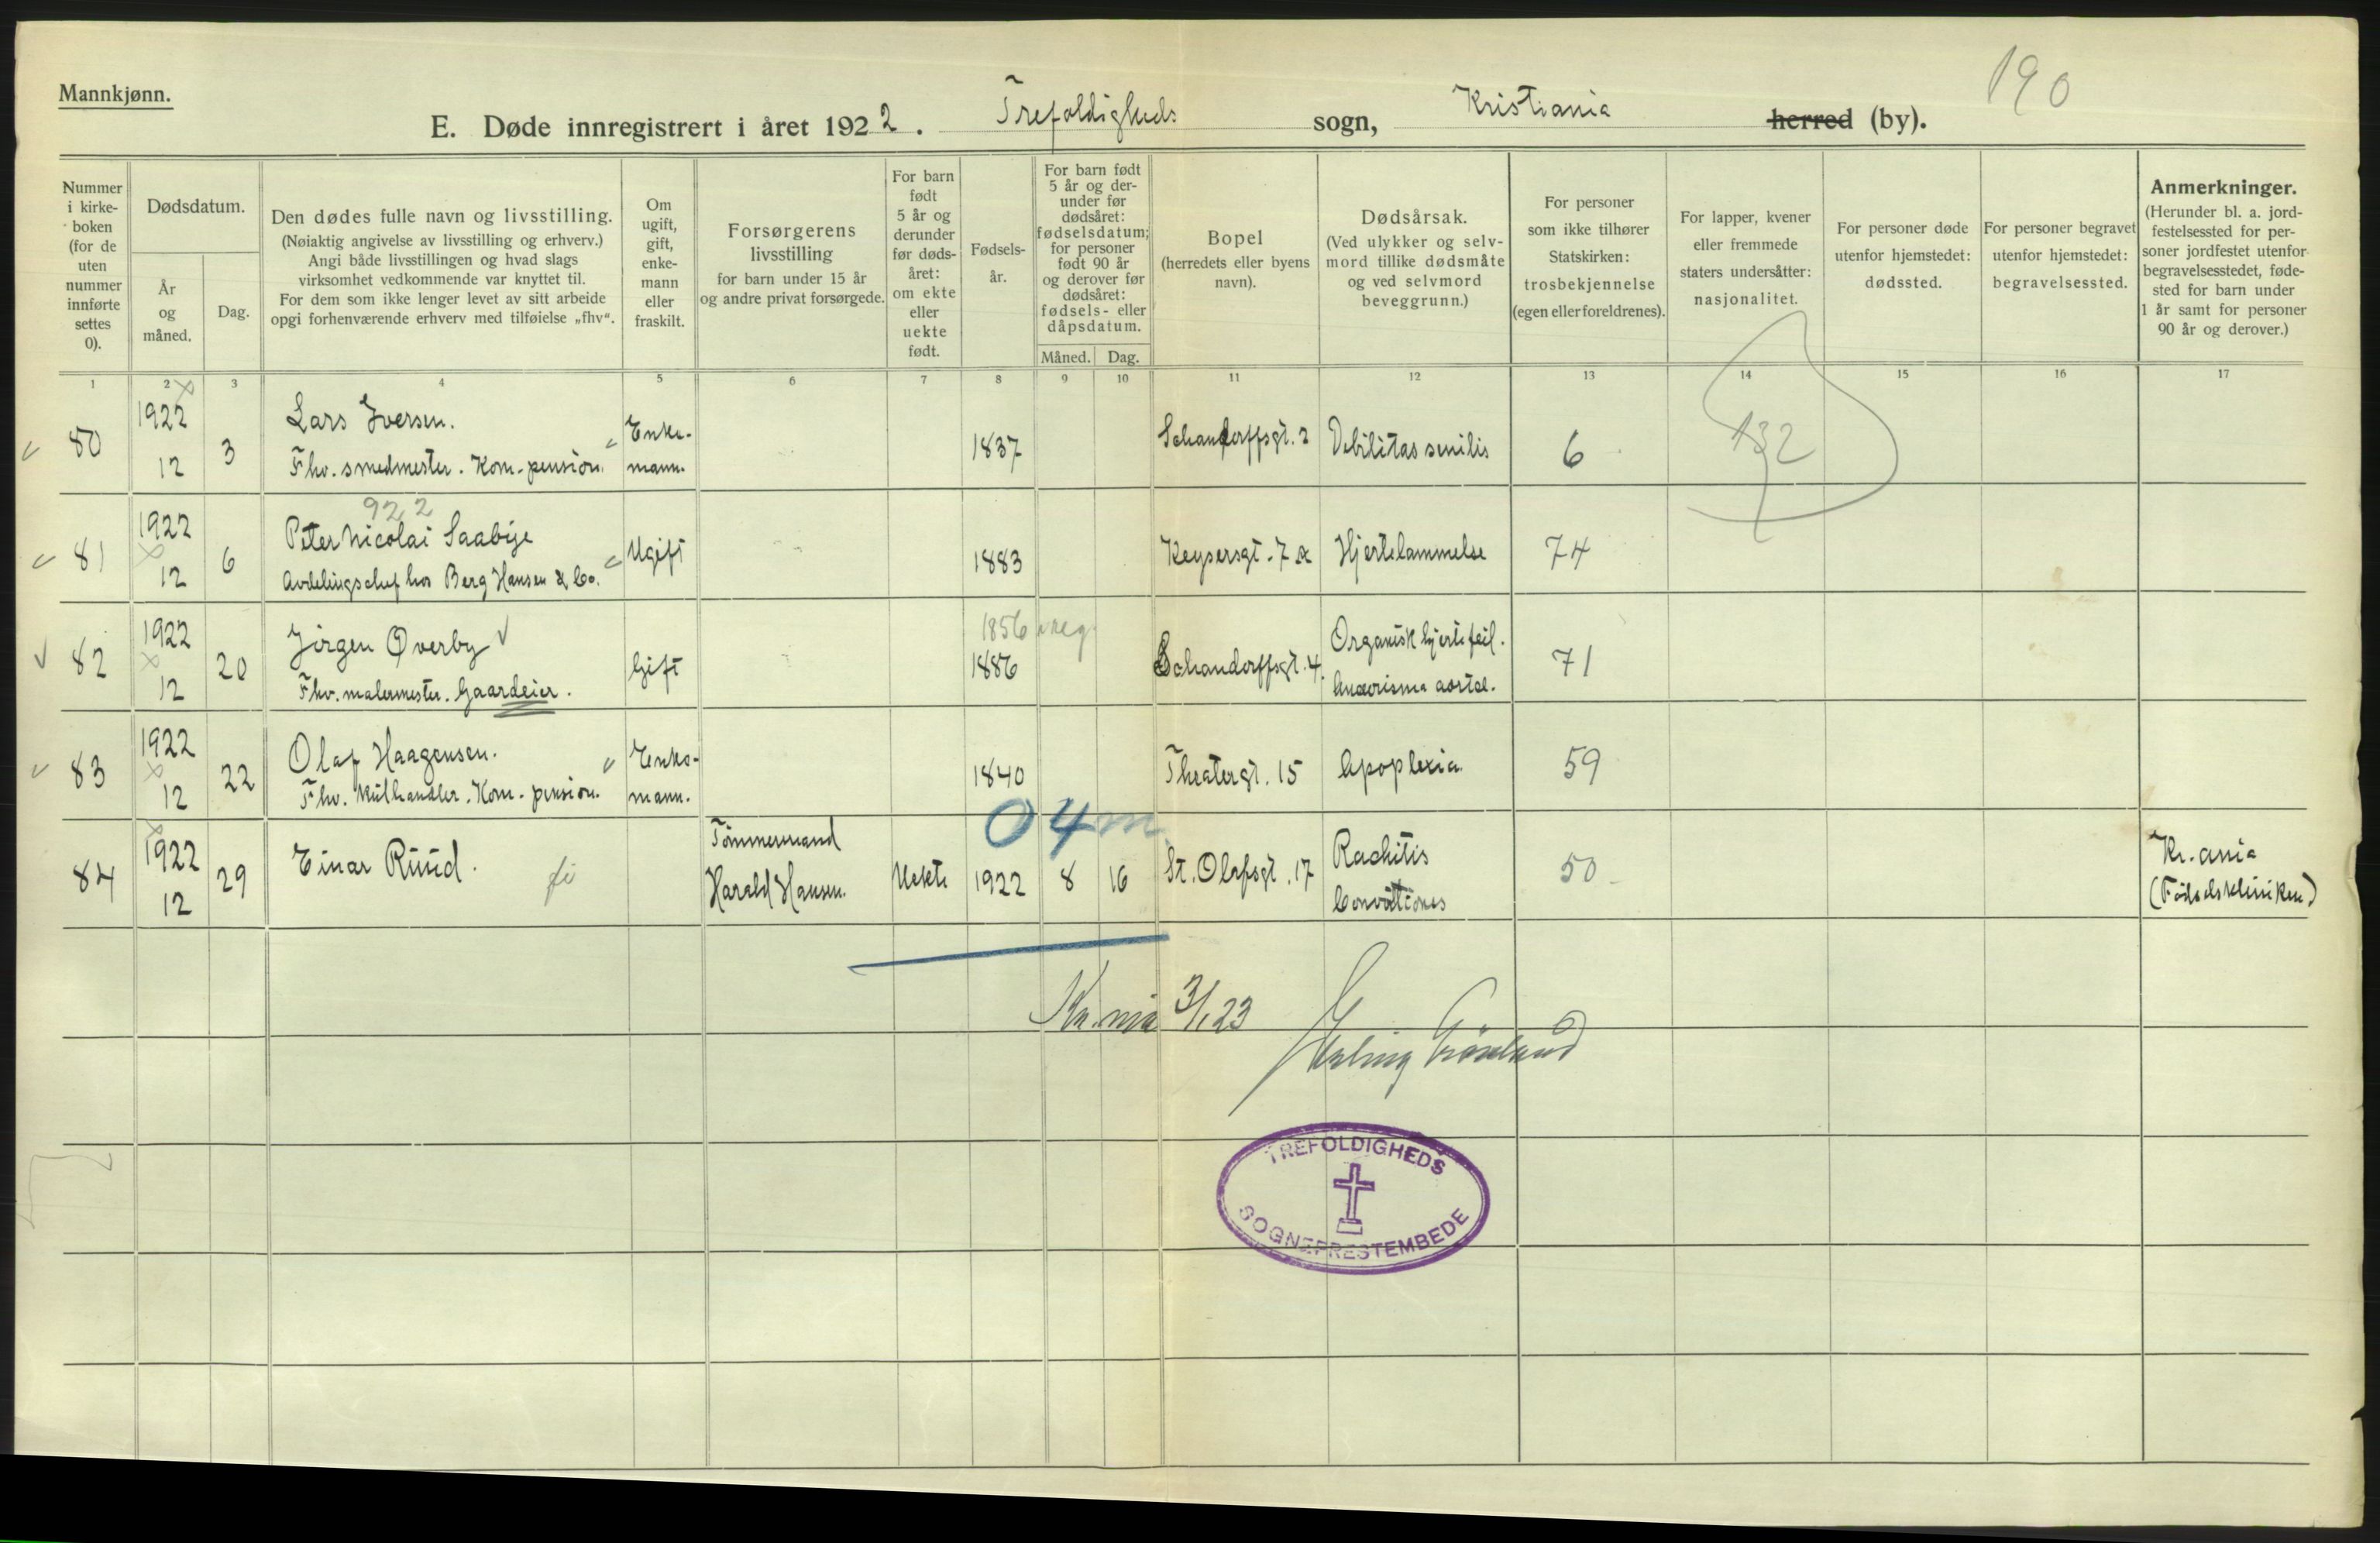 Mannkjønn.
190
E. Døde innregistrert i året 1922. Trefoldigheds sogn, Kristiania herred (by).
Nummer i kirkeboken (for de uten nummer innførte settes 0).
Dødsdatum.
År og måned.
Dag.
Den dødes fulle navn og livsstilling.
(Nøiaktig angivelse av livsstilling og erhverv.)
Angi både livsstillingen og hvad slags
virksomhet vedkommende var knyttet til.
For dem som ikke lenger levet av sitt arbeide
opgi forhenværende erhverv med tilføielse „fhv“.
Om ugift, gift, enkemann eller fraskilt.
Forsørgerens
livsstilling
for barn under 15 år
og andre privat forsørgede.
For barn født 5 år og derunder før dødsåret: om ekte eller uekte født.
Fødselsår.
For barn født 5 år og derunder før dødsåret: fødselsdatum; for personer født 90 år og derover før dødsåret: fødsels- eller dåpsdatum.
Måned. Dag.
Bopel
(herredets eller byens
navn).
Dødsårsak.
(Ved ulykker og selvmord tillike dødsmåte og ved selvmord beveggrunn.)
For personer
som ikke tilhører
Statskirken:
trosbekjennelse
(egen eller foreldrenes).
For lapper, kvener
eller fremmede
staters undersåtter:
nasjonalitet.
For personer døde
utenfor hjemstedet:
dødssted.
For personer begravet
utenfor hjemstedet:
begravelsessted.
Anmerkninger.
(Herunder bl. a. jordfestelsessted for personer jordfestet utenfor begravelsesstedet, fødested for barn under 1 år samt for personer 90 år og derover.)
1 2 3 4 5 6 7 8 9 10 11 12 13 14 15 16 17
80 1922 12 3 Lars Iversen.
Fhv. smedmester. Kom. pension. Enkemann. 1837 Schandorffsgt. 2 Debilitas senilis 6 132
922
81 1922 12 6 Peter Nicolai Saabye
Avdelingschef hos Berg Hansen & Co. Ugift 1883 Keysersgt. 7 a Hjertelammelse 74
82 1922 12 20 Jørgen Øverby
Fhv. malermester. Gaardeier. Gift 1856 1886 Schandorffsgt. 4. Organisk hjertefeil.
Aneurisma aortae. 71
83 1922 12 22 Olaf Haagensen.
Fhv. Kulhandler. Kom. pension. Enkemann. 1840 Theatergt. 15 Apoplexia. 59
04 m
84 1922 12 29 Einar Ruud. fi Tømmermand
Harald Hansen. Uekte 1922 8 16 St. Olafsgt. 17 Rachitis
50 Kr.ania
(Fødselskliniken)
Kr.nia 3/1 23
Erling Grönland
TREFOLDIGHEDS
SOGNEPRESTEMBEDE